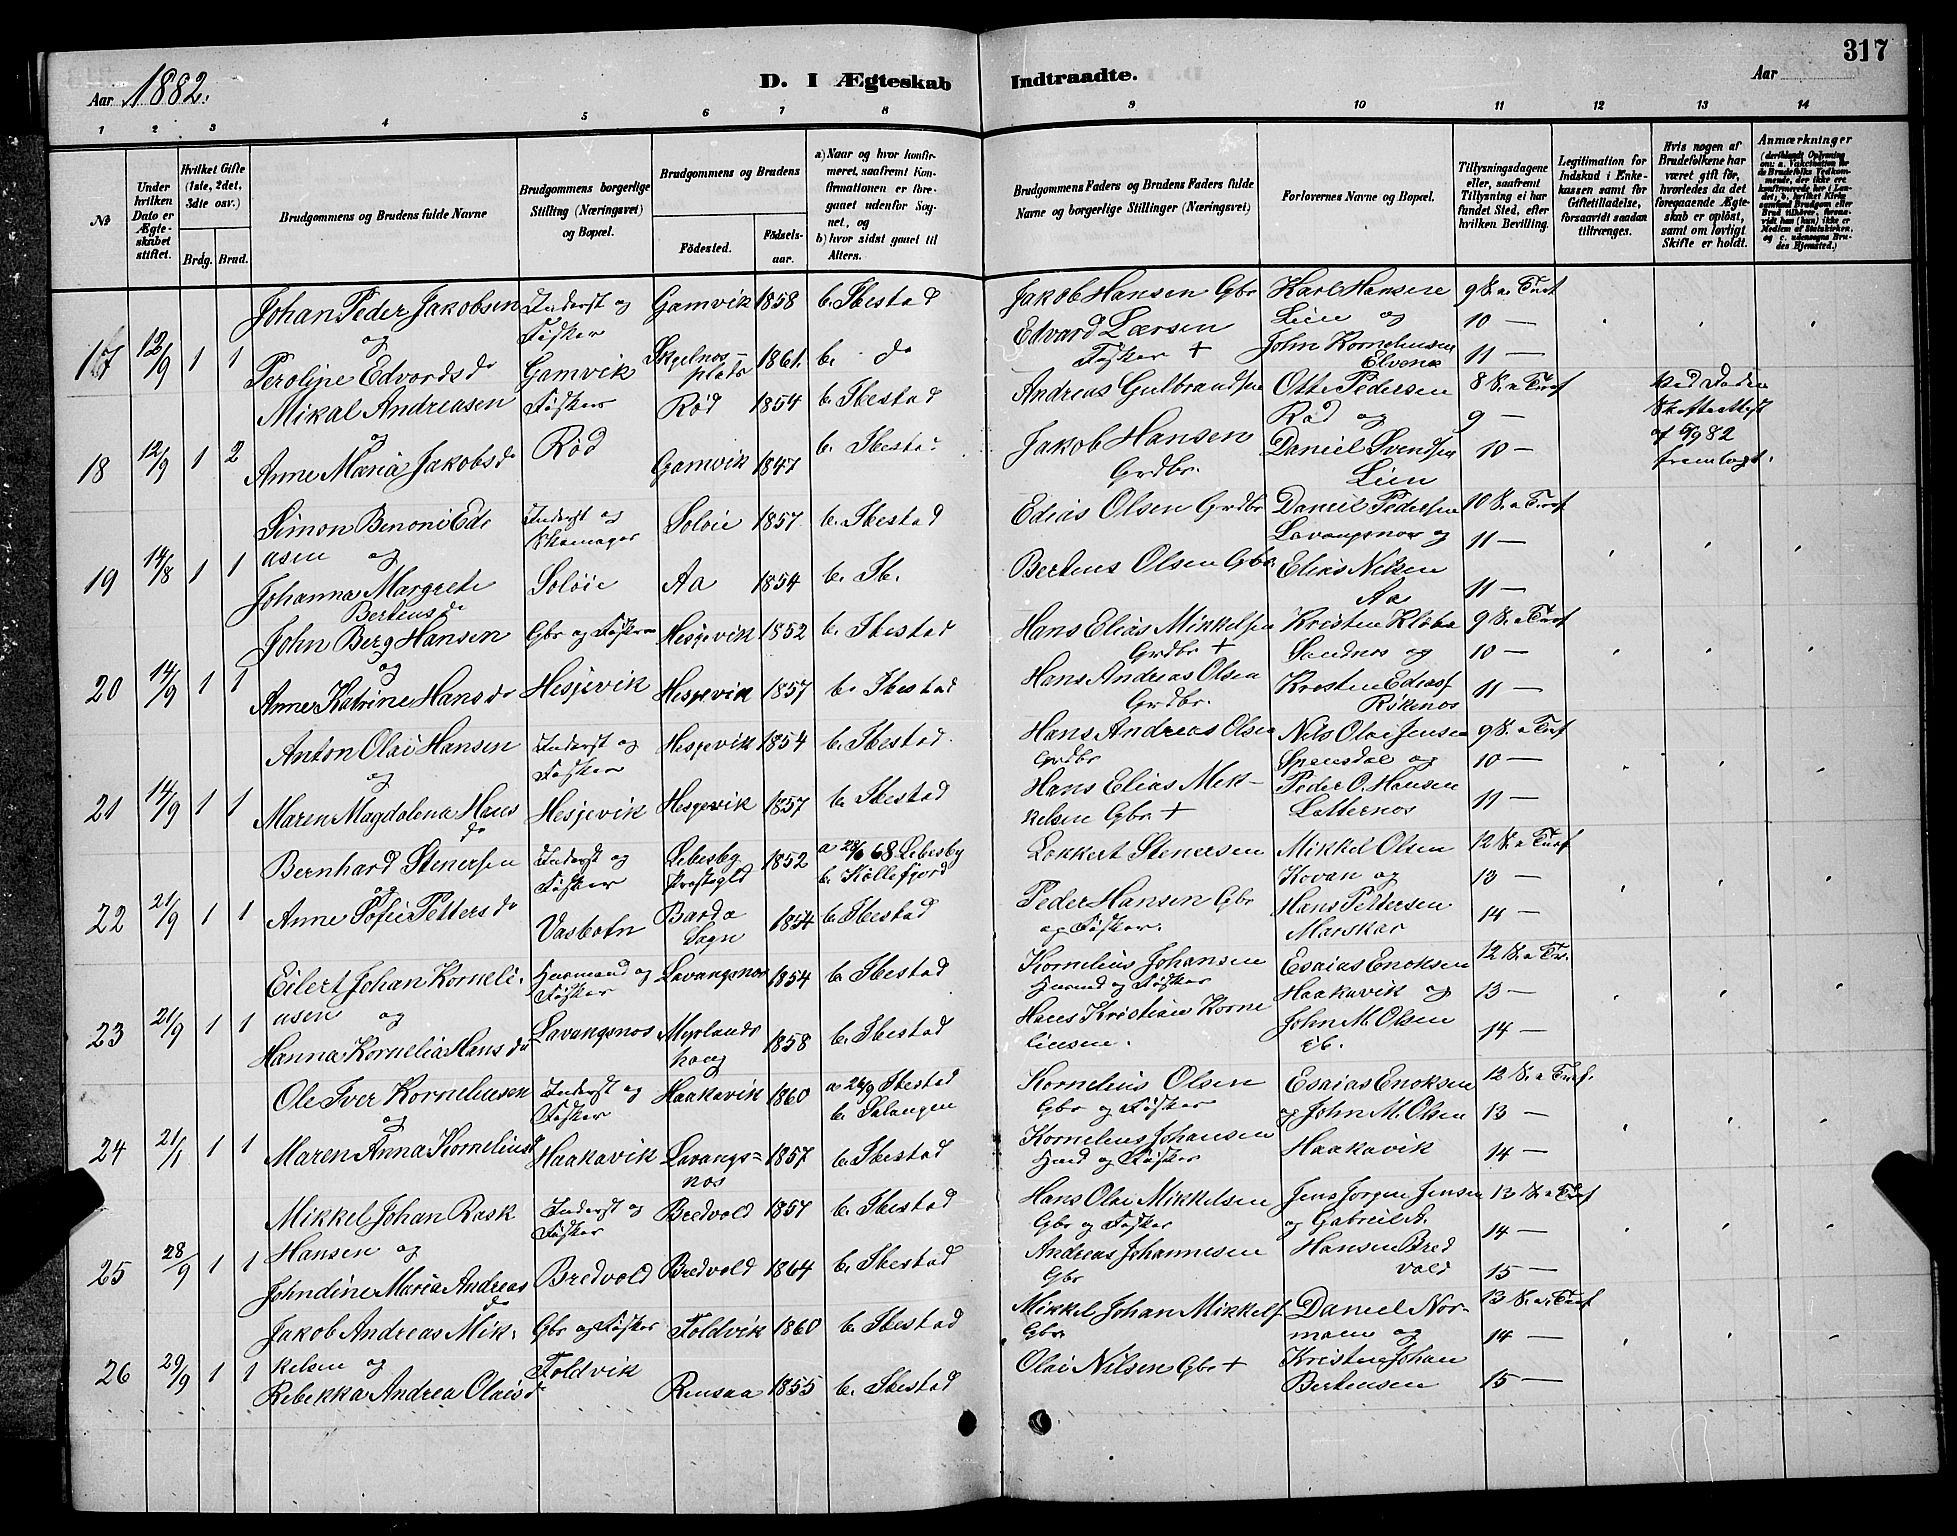 317
Aar 1882.
D. I Ægteskab Indtraadte.
Aar
1 2 3 4 5 6 7 8 9 10 11 12 13 14
No
Under hvilken Dato er Ægteskabet stiftet.
Hvilket Gifte (1ste, 2det, 3dte osv.)
Brdg. Brud.
Brudgommens og Brudens fulde Navne
Brudgommens borgerlige Stilling (Næringsvei) og Bopæl.
Brudgommens og Brudens
Fødested.
Fødselsaar.
a) Naar og hvor konfirmeret, saafremt Konfirmationen er foregaaet udenfor Sognet, og
b) hvor sidst gaaet til Alters.
Brudgommens Faders og Brudens Faders fulde Navne og borgerlige Stillinger (Næringsvei)
Forlovernes Navne og Bopæl.
Tillysningsdagene eller, saafremt Tillysning ei har fundet Sted, efter hvilken Bevilling.
Legitimation for Indskud i Enkekassen samt for Giftetilladelse, forsaavidt saadan tiltrænges.
Hvis nogen af Brudefolkene har været gift før, hvorledes da det foregaaende Ægteskab er opløst, samt om lovligt Skifte er holdt.
Anmærkninger
17 12/9 1 1
Johan Peder Jakobsen
og
Peroline Edvardsdr
Inderst og
Fisker
Gamvik
Gamvik 1858 b. Ibestad
Skjelnes-
plads 1861. b. do
Jakob Hansen Gbr
Edvard Larsen
Fisker +
Karl Hansen
Lien og
John Kornelinssen
Elvenes
9 S. a Tref
10 —
11 —
18 12/9 1 2
Mikal Andreasen
og
Anne Maria Jakobsdr
Fisker
Rød
Rød 1854 b. Ibestad
Gamvik 1847 b. Ibestad
Andreas Gulbrandsen
Jakob Hansen
Grdbr.
Otte Pedersen
Rød og
Daniel Svendsen
Lien
8 S. a Tref
9 —
10 —
Ved Døden
Skifteattest
af 5/9 82
fremlagt.
19 14/8 1 1
Simon Benoni Edi
asen og
Johanna Margrete
Bertensdr
Inderst og
Skomager
Soløie
Soløie 1857. b. Ibestad
Aa 1854 b. Ib.
Edias Olsen Grdbr
Bertens Olsen Gbr
Daniel Pedersen
Lavangsnes og
Elias Nilsen
Aa
10 S. a Tref
11 —
11 —
20 14/9 1 1
John Berg Hansen
og
Anne Katrine Hansdr
Gbr og Fisker
Hesjevik
Hesjevik 1852 b. Ibestad
Hesjevik 1857 b. Ibestad
Hans Elias Mikkelsen
Grdbr +
Hans Andreas Olsen
Grdbr.
Kristen Klæbo
Sandnes og
Kristen Ediass
Røkenes
9 S. a Tref
10 —
11 —
21 14/9 1 1
Anton Olai Hansen
og
Maren Magdalena Hans
dr
Inderst og
Fisker
Hesjevik
Hesjevik 1854 b. Ibestad.
Hesjevik 1857 b. Ibestad
Hans Andreas Olsen
Grdbr
Hans Elias Mik-
kelsen Gbr +
Nils Olai Jensen
Spansdal og
Peder O. Hansen
Latternes
9 S. a Tref
10 —
11 —
22 21/9 1 1
Bernhard Stenersen
og
Anne Sofie Pettersdr
Inderst og
Fisker
Vasbotn
Lebesby
Prestegld 1852 a 28/6 68 Lebesby
b. Kollefjord
Bardo
Sogn 1854 b. Ibestad
Lokkert Stenersen
Peder Hansen Gbr
og Fisker.
Mikkel Olsen
Kovan og
Hans Pettersen
Marskar
12 S. a Tref
13 —
14 —
23 21/9 1 1
Eilert Johan Korneli.
usen og
Hanna Kornelia Hansdr
Husmand og
Fisker
Lavangsnes
Lavangsnes 1854 b. Ibestad
Myrlands
haug 1858 b. Ibestad
Kornelius Johansen
Husmd og Fisker
Hans Kristian Korne
liussen.
Esaias Enoksen
Haakavik og
John M. Olsen
ib.
12 S. a Tr.
13 —
14 —
24 21/1 1 1
Ole Iver Korneliusen
og
Maren Anna Korneliusdr
Inderst og
Fisker
Haakavik
Haakavik 1860 a 26/9 Ibestad
b. Salangen
Lavangs=
nes 1857 b. Ibestad
Kornelius Olsen
Gbr og Fisker
Kornelius Johansen
Hmd og Fisker
Esaias Enoksen
og John M. Olsen
Haakavik
12 S. a Tref.
13 —
14 —
25 28/9 1 1
Mikkel Johan Rask
Hansen og
Johndine Maria Andreas
dr
Inderst og
Fisker
Bredvold
Bredvold 1857 b. Ibestad
Bredvold 1864 b. Ibestad
Hans Olai Mikkelsen
Gbr og Fisker
Andreas Johannesen
Gbr
Jens Jørgen Jensen
og Gabreil A.
Hansen Bred
vold
13 S. a Tref
14 —
15 —
26 29/9 1 1
Jakob Andreas Mik.
kelsen og
Rebekka Andrea Olaisdr
Gbr og Fisker
Foldvik
Foldvik 1860 b. Ibestad
Rensaa 1855 b. Ibestad
Mikkel Johan Mikkels
Gbr
Olai Nilsen Gbr +
Daniel Nor-
mann og
Kristen Johan
Bertensen
13 S. a. Tref
14 —
15 —